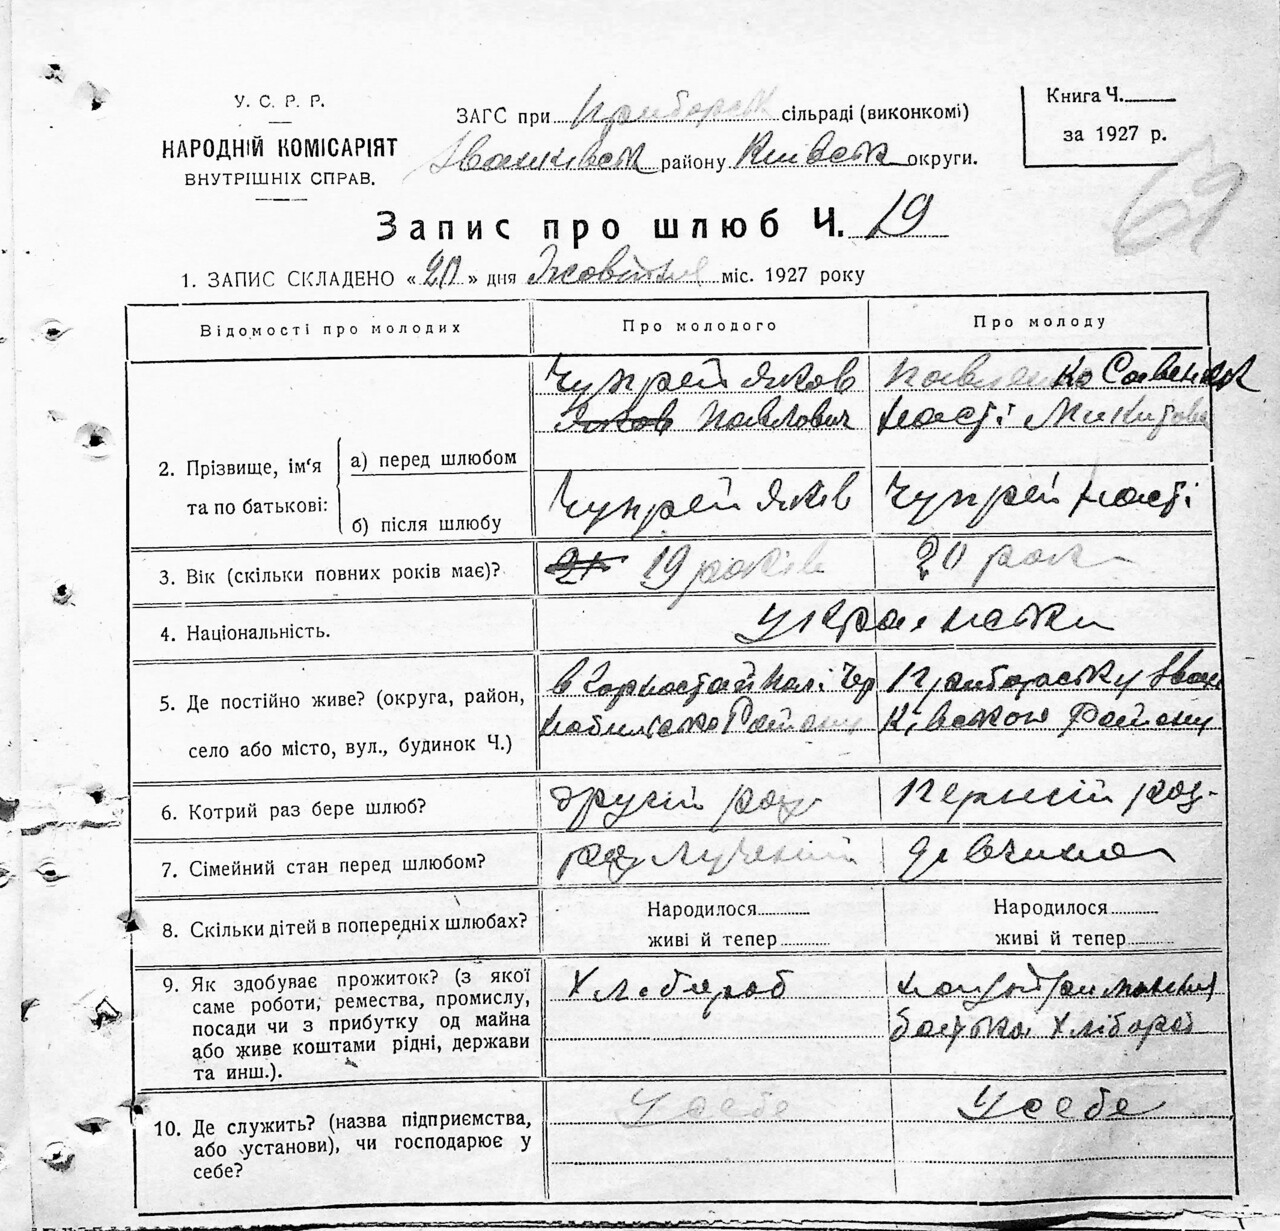 У. С. Р. Р.
НАРОДНІЙ КОМІСАРІЯТ
ВНУТРІШНІХ СПРАВ.
ЗАГС при Приборськ сільраді (виконкомі)
Іванківськ району Київськ округи.
Книга Ч.
за 1927 р.
69
Запис про шлюб Ч. 19
1. ЗАПИС СКЛАДЕНО «20» дня Жовтня міс. 1927 року
Відомості про молодих
Про молодого
Про молоду
2. Прізвище, ім'я та по батькові:
а) перед шлюбом
Чупрей Яков
Яков Павлович
Павленко Савенок
Насті Микитова
б) після шлюбу
Чупрей Яків
Чупрей Насті
3. Вік (скільки повних років має)?
21 19 років
20 рок
4. Національність.
Украінськи
5. Де постійно живе? (округа, район,
село або місто, вул., будинок Ч.)
в Горностайполі Чор
нобильсько Району
Приборську Іван
ківського Району
6. Котрий раз бере шлюб?
другій раз
первий раз
7. Сімейний стан перед шлюбом?
разлученій
дівчина
8. Скільки дітей в попередніх шлюбах?
Народилося
живі й тепер
Народилося
живі й тепер
9. Як здобуває прожиток? (з якої
саме роботи, ремества, промислу,
посади чи з прибутку од майна
або живе коштами рідні, держави
та инш.).
Хлібороб
батька Хлібороб
10. Де служить? (назва підприємства,
або установи), чи господарює у
себе?
У себе
У себе